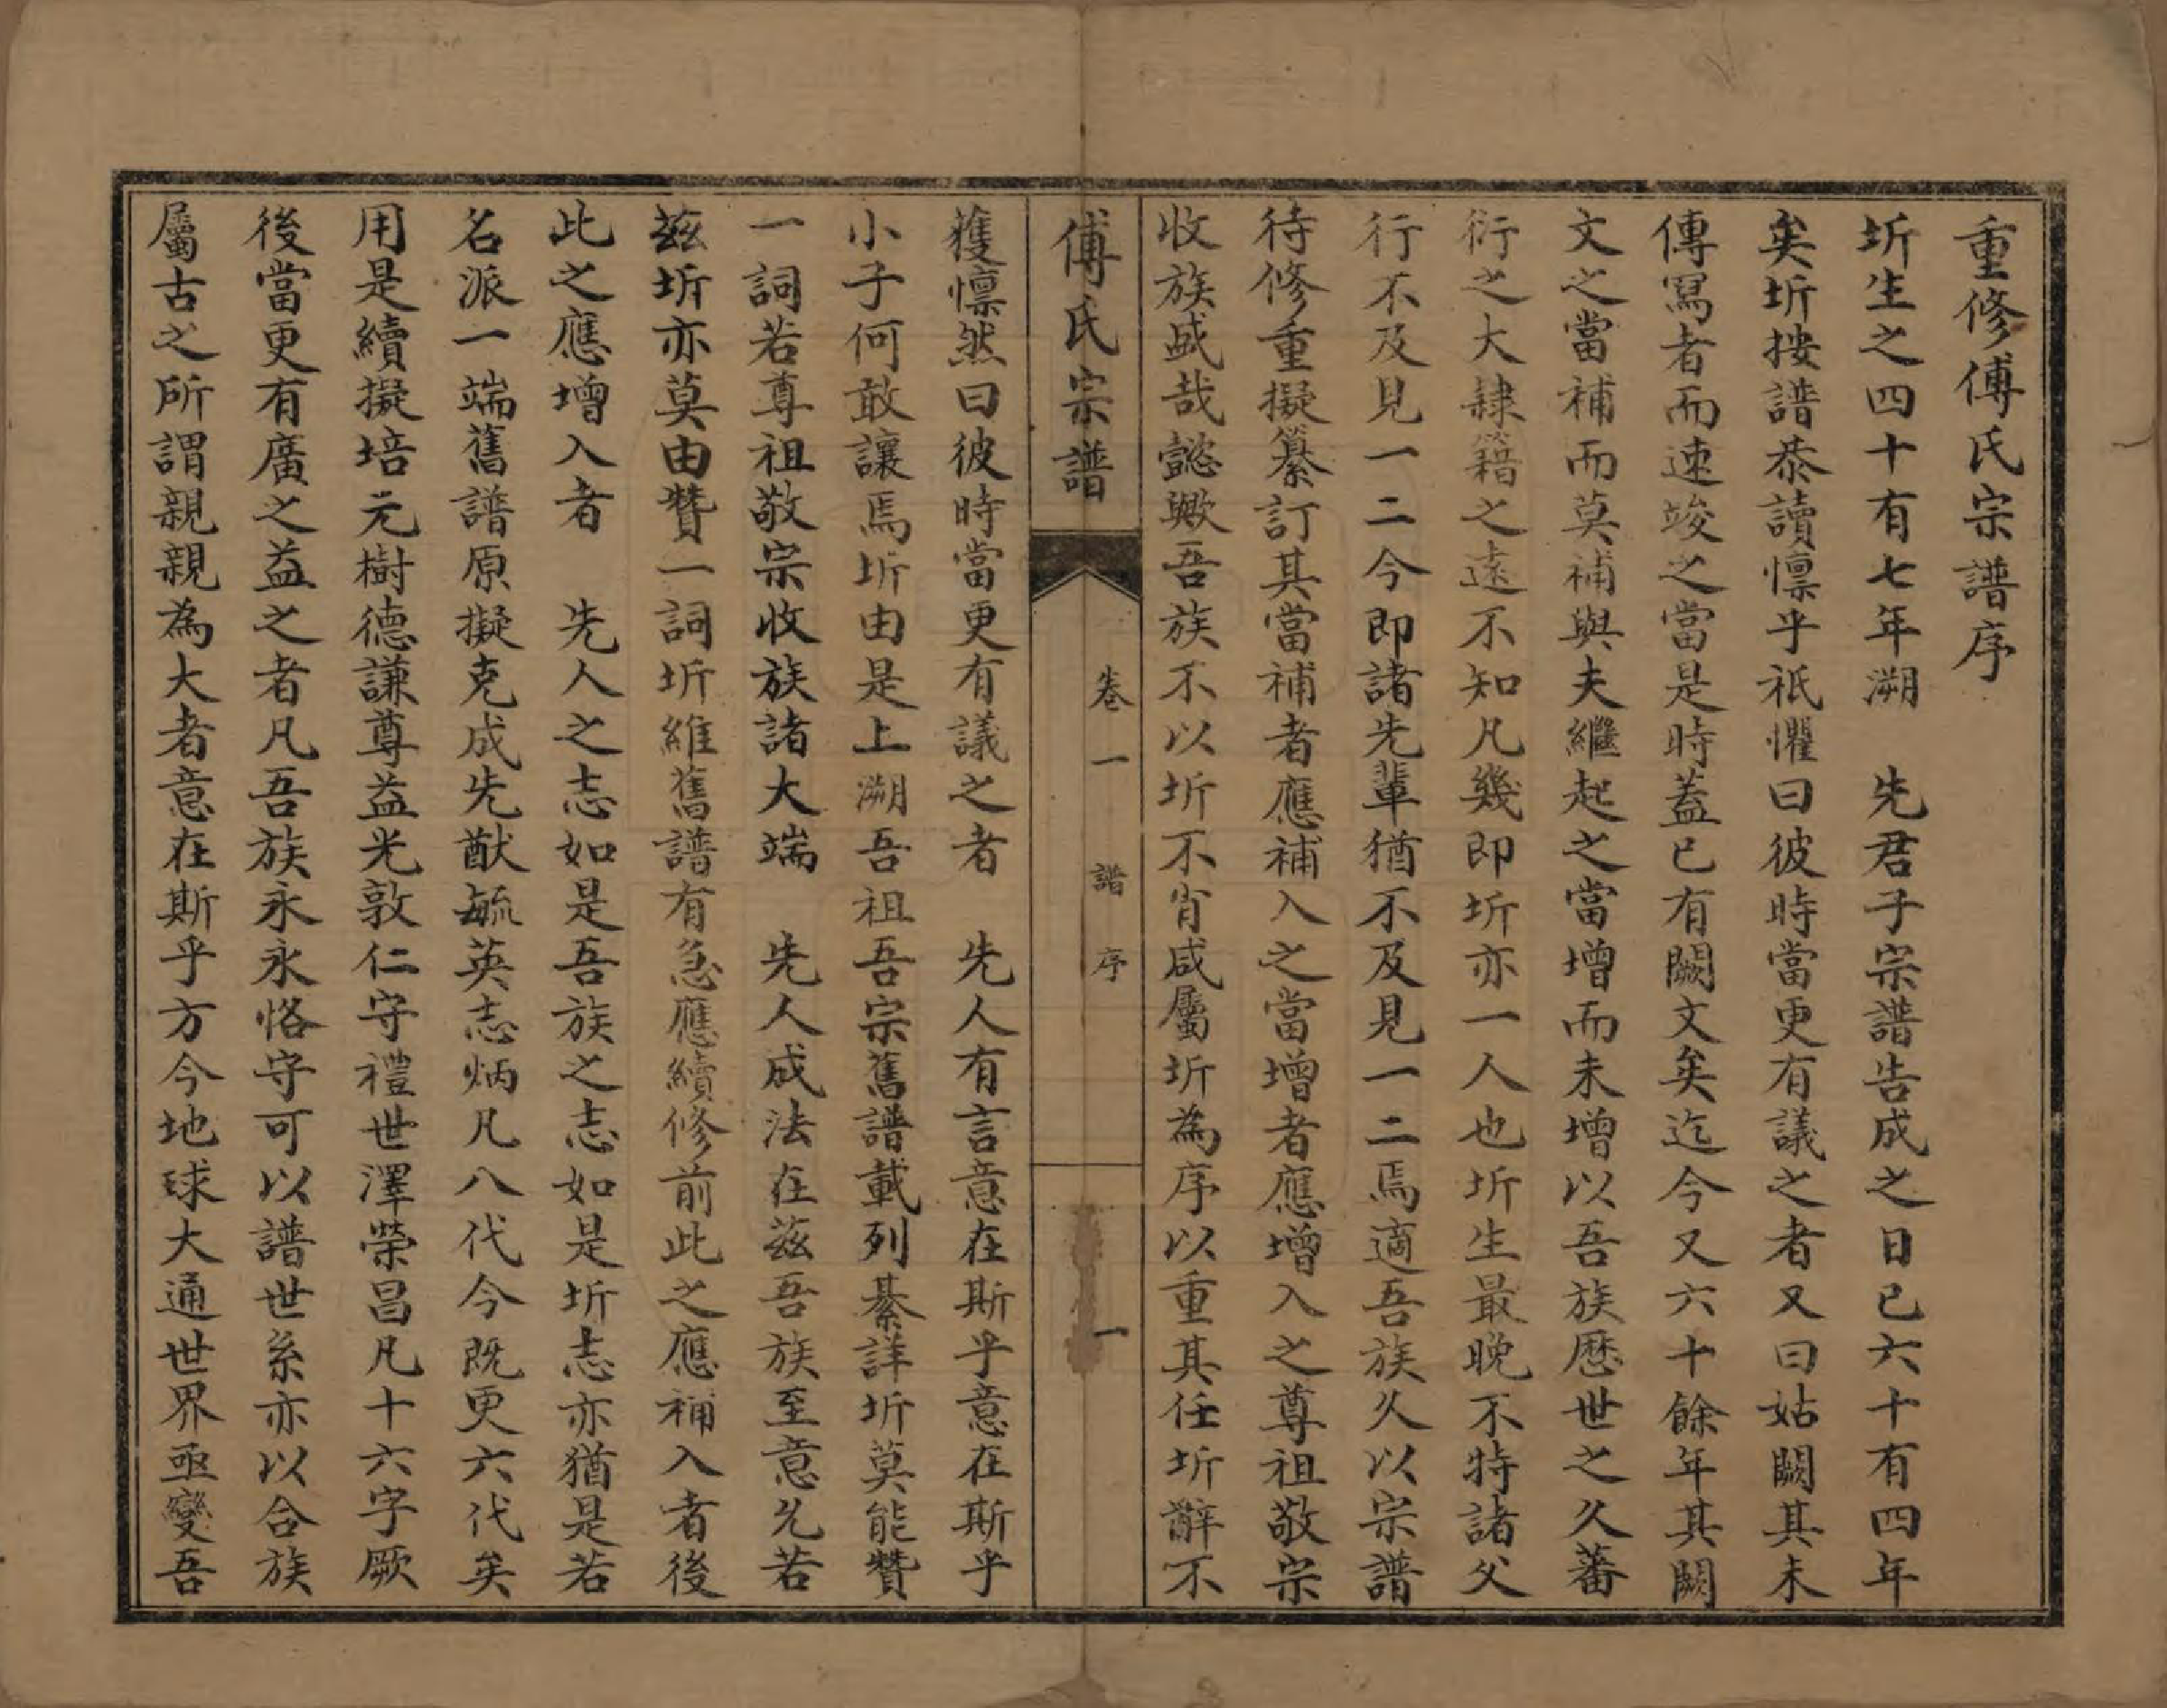 重修傅氏宗譜序
圻生之四十有七年溯　先君子宗譜告成之日已六十有四年
矣圻按譜恭讀懔乎祇懼曰彼時當更有議之者又曰姑闕其未
傳寫者而速竣之當是時蓋已有闕文矣迄今又六十餘年其闕
文之當補而莫補與夫繼起之當增而未增以吾族歷世之久蕃
衍之大隸籍之遠不知凡幾即圻亦一人也圻生最晚不特諸父
行不及見一二今即諸先輩猶不及見一二焉適吾族久以宗譜
待修重擬纂訂其當補者應補入之當增者應增入之尊祖敬宗
收族盛哉懿歟吾族不以圻不肖咸屬圻為序以重其任圻辭不
傅氏宗譜
卷一　譜序
一
獲懔然曰彼時當更有議之者　先人有言意在斯乎意在斯乎
小子何敢讓焉圻由是上溯吾祖吾宗舊譜載列綦詳圻莫能贊
一詞若尊祖敬宗收族諸大端　先人成法在茲吾族至意允若
茲圻亦莫由贊一詞圻維舊譜有急應續修前此之應補入者後
此之應增入者　先人之志如是吾族之志如是圻志亦猶是若
名派一端舊譜原擬克成先猷毓英志炳凡八代今既更六代矣
用是續擬培元樹德謙尊益光敦仁守禮世澤榮昌凡十六字厥
後當更有廣之益之者凡吾族永永恪守可以譜世系亦以合族
屬古之所謂親親為大者意在斯乎方今地球大通世界亟變吾